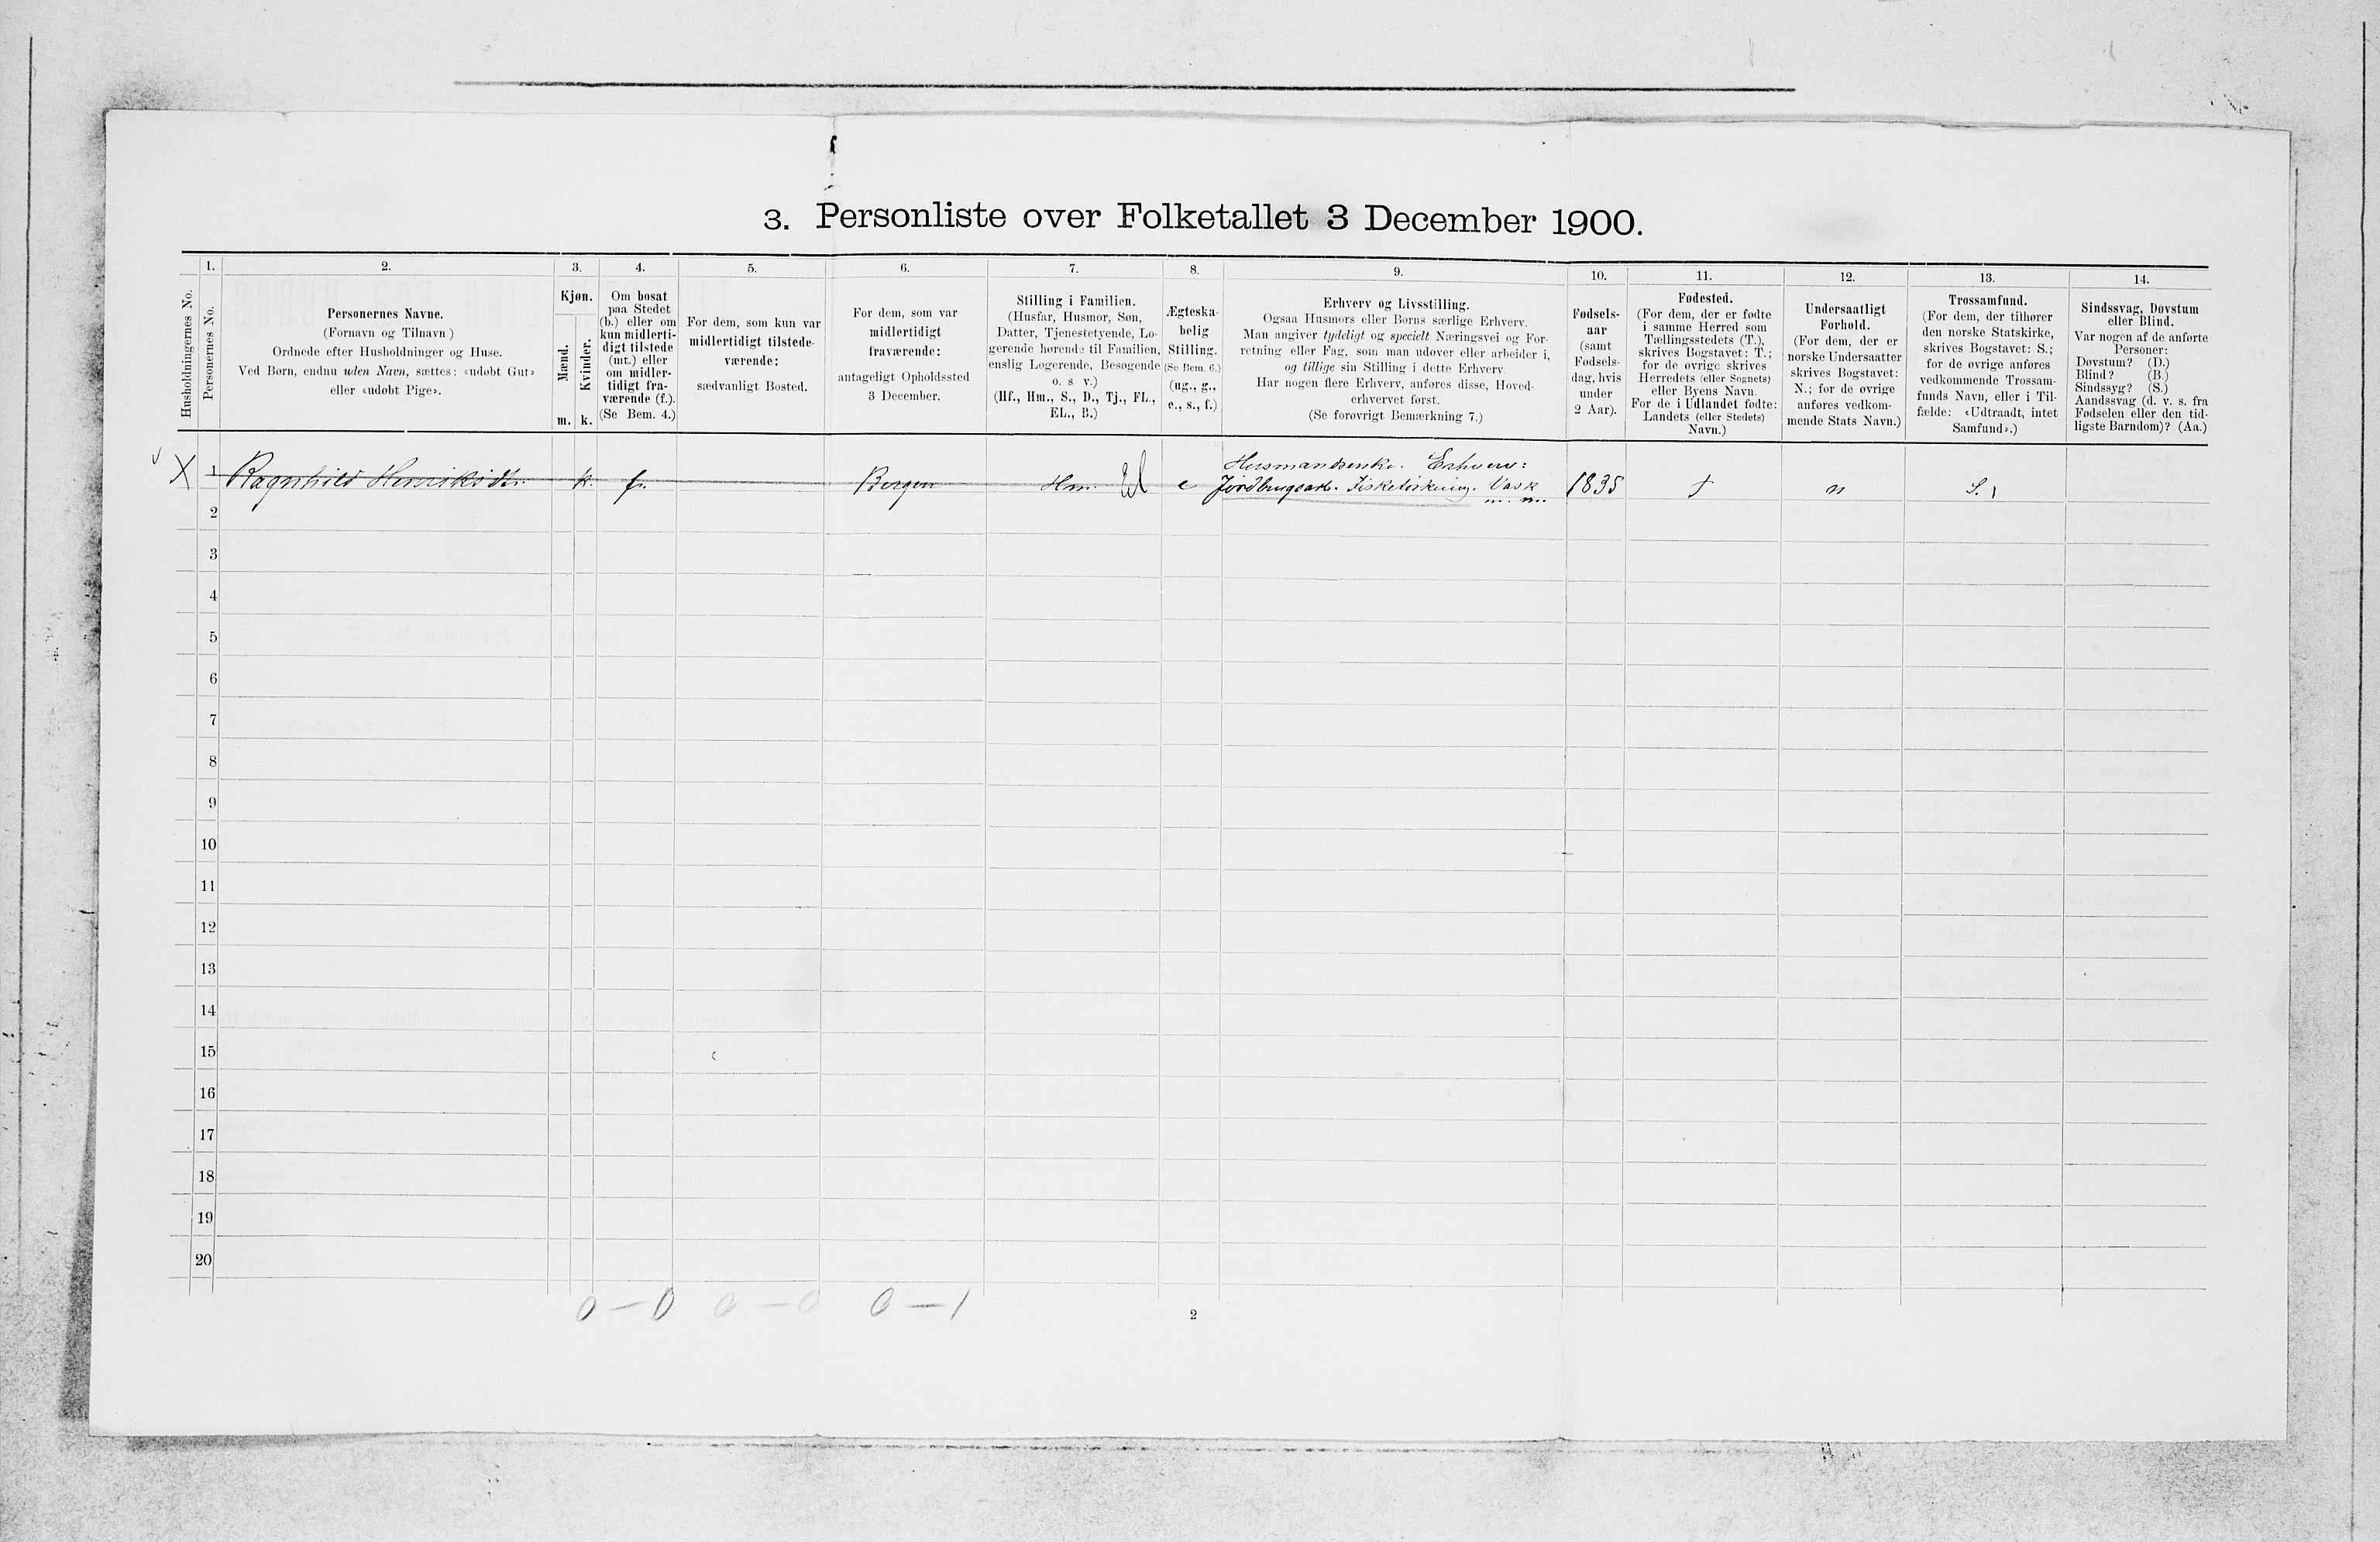 3. Personliste over Folketallet 3 December 1900.
1. 2. 3. 4. 5. 6. 7. 8. 9. 10. 11. 12. 13. 14.
Husholdningernes No.
Personernes No.
Personernes Navne.
(Fornavn og Tilnavn)
Ordnede efter Husholdninger og Huse.
Ved Børn, endnu uden Navn, sættes: «udøbt Gut»
eller «udøbt Pige».
Kjøn.
Mænd.
Kvinder.
m. k.
Om bosat
paa Stedet
(b.) eller om
kun midlerti-
digt tilstede
(mt.) eller
om midler-
tidigt fra-
værende (f.).
(Se Bem. 4.)
For dem, som kun var
midlertidigt tilstede-
værende:
sædvanligt Bosted.
For dem, som var
midlertidigt
fraværende:
antageligt Opholdssted
3 December.
Stilling i Familien.
(Husfar, Husmor, Søn,
Datter, Tjenestetyende, Lo-
gerende hørende til Familien,
enslig Logerende, Besøgende
o. s v.)
(Hf., Hm., S., D., Tj., FL.,
EL., B.)
Ægteska-
belig
Stilling.
(Se Bem. 6.)
(ug., g.,
e., s., f.)
Erhverv og Livsstilling.
Ogsaa Husmors eller Børns særlige Erhverv.
Man angiver tydeligt og specielt Næringsvei og For-
retning eller Fag, som man udøver eller arbeider i,
og tillige sin Stilling i dette Erhverv.
Har nogen flere Erhverv, anføres disse, Hoved-
erhvervet først.
(Se forøvrigt Bemærkning 7.)
Fødsels-
aar
(samt
Fødsels-
dag, hvis
under
2 Aar).
Fødested.
(For dem, der er fødte
i samme Herred som
Tællingsstedets (T.),
skrives Bogstavet: T.;
for de øvrige skrives
Herredets (eller Sognets)
eller Byens Navn.
For de i Udlandet fødte:
Landets (eller Stedets)
Navn.)
Undersaatligt
Forhold.
(For dem, der er
norske Undersaatter
skrives Bogstavet:
N.; for de øvrige
anføres vedkom-
mende Stats Navn.)
Trossamfund.
(For dem, der tilhører
den norske Statskirke,
skrives Bogstavet: S.;
for de øvrige anføres
vedkommende Trossam-
funds Navn, eller i Til-
fælde: «Udtraadt, intet
Samfund».)
Sindssvag, Døvstum
eller Blind.
Var nogen af de anførte
Personer:
Døvstum? (D.)
Blind? (B.)
Sindssyg? (S.)
Aandssvag (d. v. s. fra
Fødselen eller den tid-
ligste Barndom)? (Aa.)
Husmandsenke. Erhverv:
X 1 Ragnhild Henriksdtr. k. f. Bergen Hm. El e Jordbrugsarb. Fisketørkning. Vask 1835 T n S.
m. m.
2
3
4
5
6
7
8
9
10
11
12
13
14
15
16
17
18
19
20
0 – 0 0 – 0 0 – 1
2